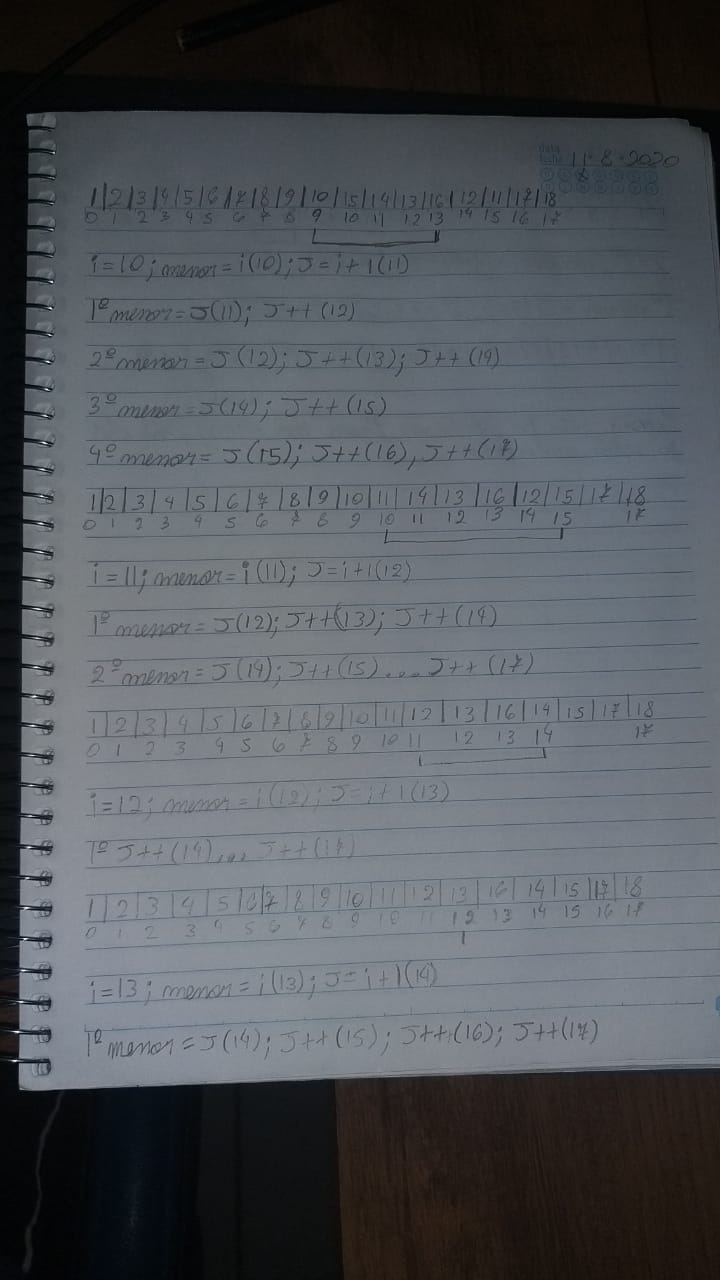 data
fecha 11 · 8 · 2020
1|2|3|4|5|6|7|8|9|10|15|14|13|16|12|11|17|18
0 1 2 3 4 5 6 7 8 9 10 11 12 13 14 15 16 17
i=10; menor=i(10); J=i+1(11)
1º menor=J(11); J++(12)
2º menor=J(12); J++(13); J++(14)
3º menor=J(14); J++(15)
4º menor=J(15); J++(16), J++(17)
1|2|3|4|5|6|7|8|9|10|11|14|13|16|12|15|17|18
0 1 2 3 4 5 6 7 8 9 10 11 12 13 14 15 17
i=11; menor=i(11); J=i+1(12)
1º menor=J(12); J++(13); J++(14)
2º menor=J(14); J++(15)... J++(17)
1|2|3|4|5|6|7|8|9|10|11|12|13|16|14|15|17|18
0 1 2 3 4 5 6 7 8 9 10 11 12 13 14 17
i=12; menor=i(12); J=i+1(13)
1º J++(14)... J++(17)
1|2|3|4|5|6|7|8|9|10|11|12|13|16|14|15|17|18
0 1 2 3 4 5 6 7 8 9 10 11 12 13 14 15 16 17
i=13; menor=i(13); J=i+1(14)
1º menor=J(14); J++(15); J++(16); J++(17)